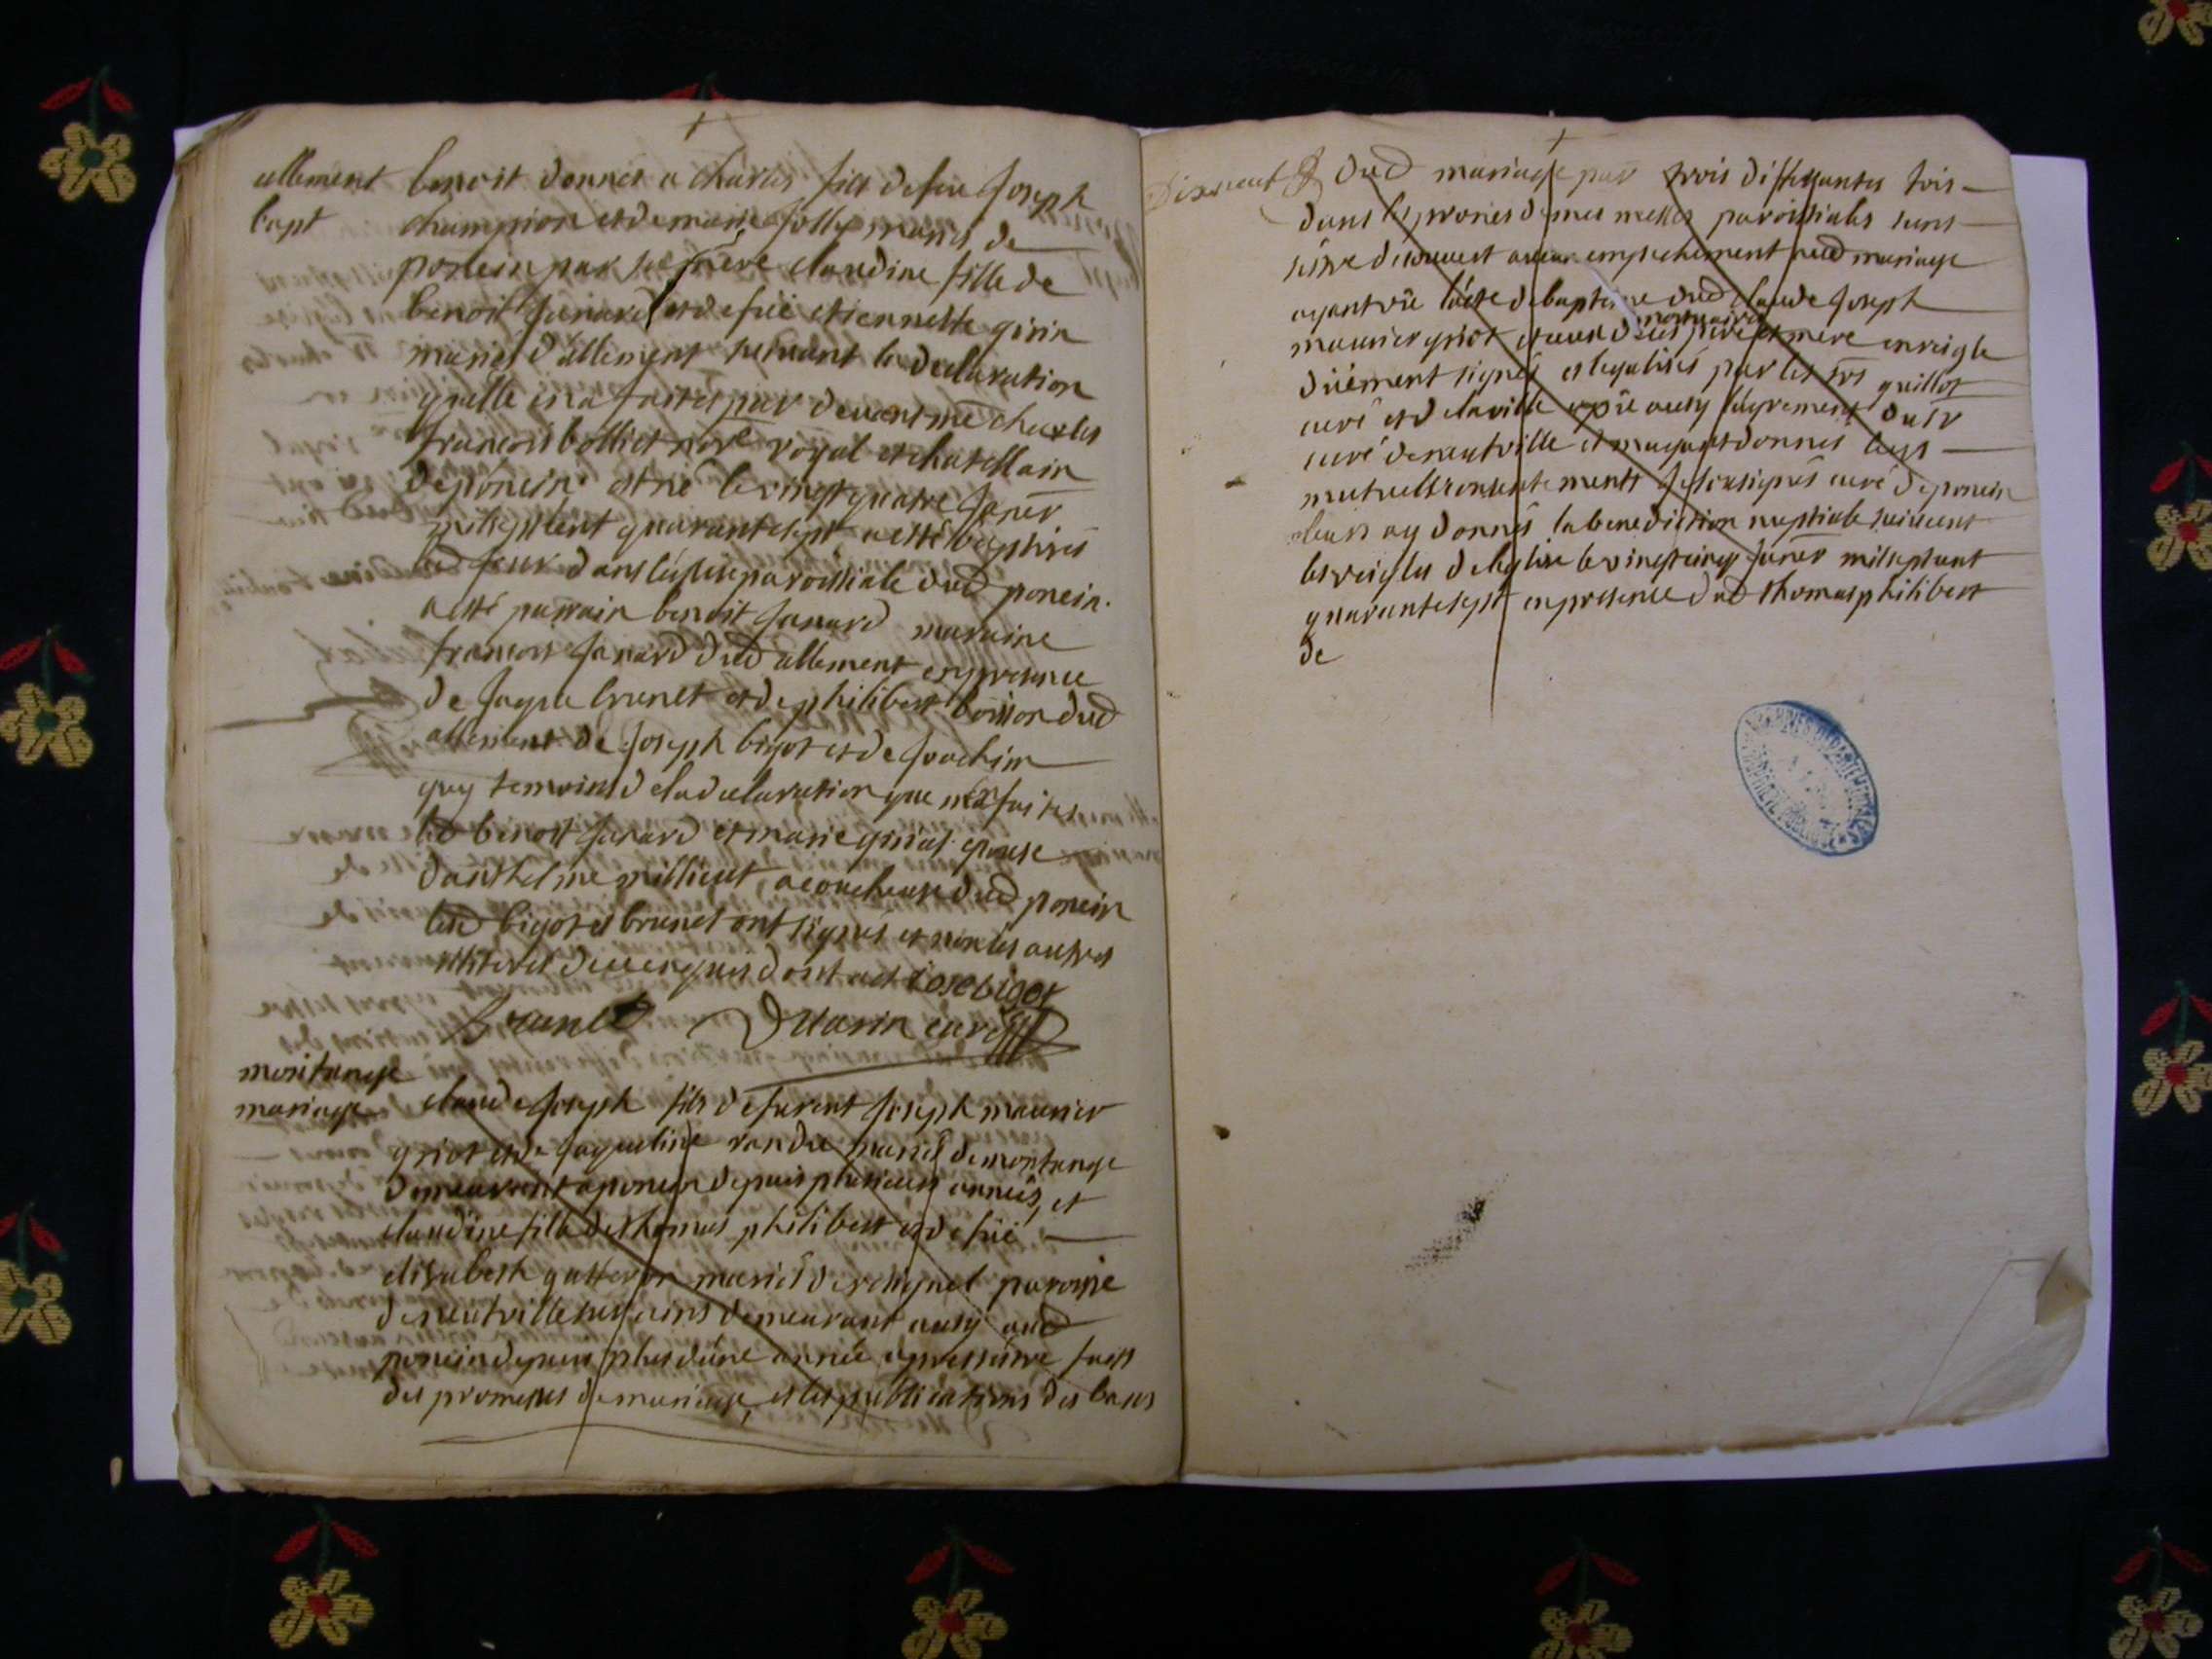 allement
bapt
benoist donnés a charles fils de feu Joseph
champion et de marie Jolly mariés de
poncin par sa mère claudine fille de
benoit Janard et de füe etiennette girin
mariés d'allement suivant la declaration
qu'elle en a faites par devant me charles
francois bolliet nore royal et chatellain
de poncin est né le vingt quatre Janer
mil sept cent quarante sept a esté baptisés
led jour dans l'eglise paroissiale dud poncin.
a esté parrain benoit Janard maraine
francoise Janard dud allement en presence
de Jaque brunet et de philibert boisson dud
allement de Joseph bigot et de Joachim
guy temoins de la declaration que m'a faites
led benoit Janard et marie girias epouse
d'anthelme millieut acoucheuse dud poncin
lesd bigot et brunet ont signés et non les autres
illiterés de ce enquis dont acte Iose bigot
brunet Duarin curé
montange
mariage
claude Joseph fils de furent Joseph maurier
griot et de Jaqueline randu mariés de montange
demeurant a poncin depuis plusieurs années, et
claudine fille de thomas philibert et de füe
elisabeth gutteron mariés de chignat paroisse
de neutville sur ains demeurant ausy aud
poncin depuis plus d'une année apres s'estre faits
des promesses de mariage, et les publications des bans
Dixneuf
dud mariage par trois differantes fois
dans les prones de mes messes paroissiales sans
s'estre decouvert aucun empechement aud mariage
ayant vûe l'acte de bapteme dud claude Joseph
maurier griot et ceux
mortuaires
de ses père et mère en reigle
düement signés et legalisés par les srs guillot
curé et delaville apüe ausy l'agrement du sr
curé de neutville et m'ayant donnés leurs
mutuels consentements Je soussignés curé de poncin
leurs ay donnés la benediction nuptiale suivent
les reigles de l'eglise le vingt cinq Janer mil sept cent
quarante sept en presence dud thomas philibert
de